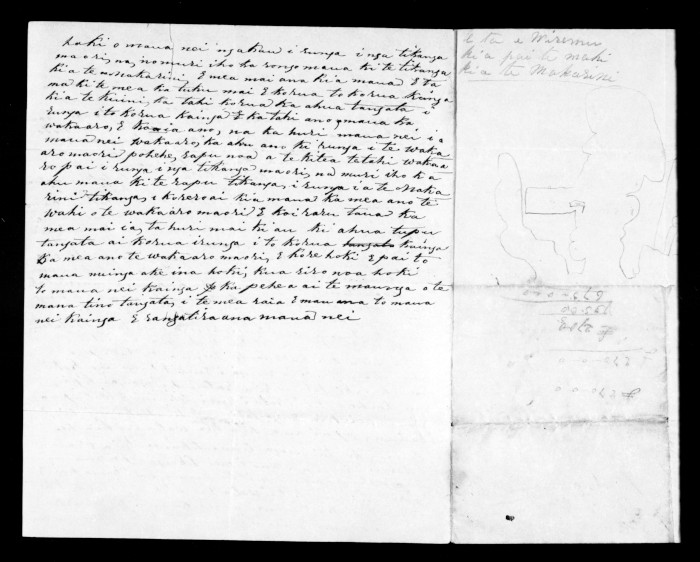 hoki o maua nei ngakau i runga i nga tikanga
maori, na, no muri iho ka rongo maua ki te tikanga
kia te Makarini, E mea mai ana kia maua E ta
ma ki te mea ka tuku mai E korua to korua kainga
kia te Kuini, ka tahi korua ka ahua tangata i
runga i to korua kainga E ka tahi ano maua ka
wakaaro, E ano, na ka huri maua nei i a
maua nei wakaaro, ka ahu ano ki runga i te waka
aro maori pohehe, rapu noa a te kitea tetahi wakaa
ro pai i runga i nga tikanga maori, na muri iho ka
ahu maua ki te rapu tikanga, i runga i a te Maka
rini tikanga, i korero ai kia maua ka mea ano te
wahi o te wakaaro maori E kai raru taua ka
mea mai ia, ta huri mai ki au ki ahua tupu
tangata ai korua i runga i to korua tangata kainga
Ka mea ano te wakaaro maori, E kore hoki E pai to
maua muinga ake ina hoki, kua riro noa hoki
to maua nei kainga ka pehea ai te maunga o te
mana tino tangata, i te mea raia E mau ana to maua
nei kainga E rangatira ana maua nei
E ta e Wiremu
kia pai te mahi
kia te Makarini